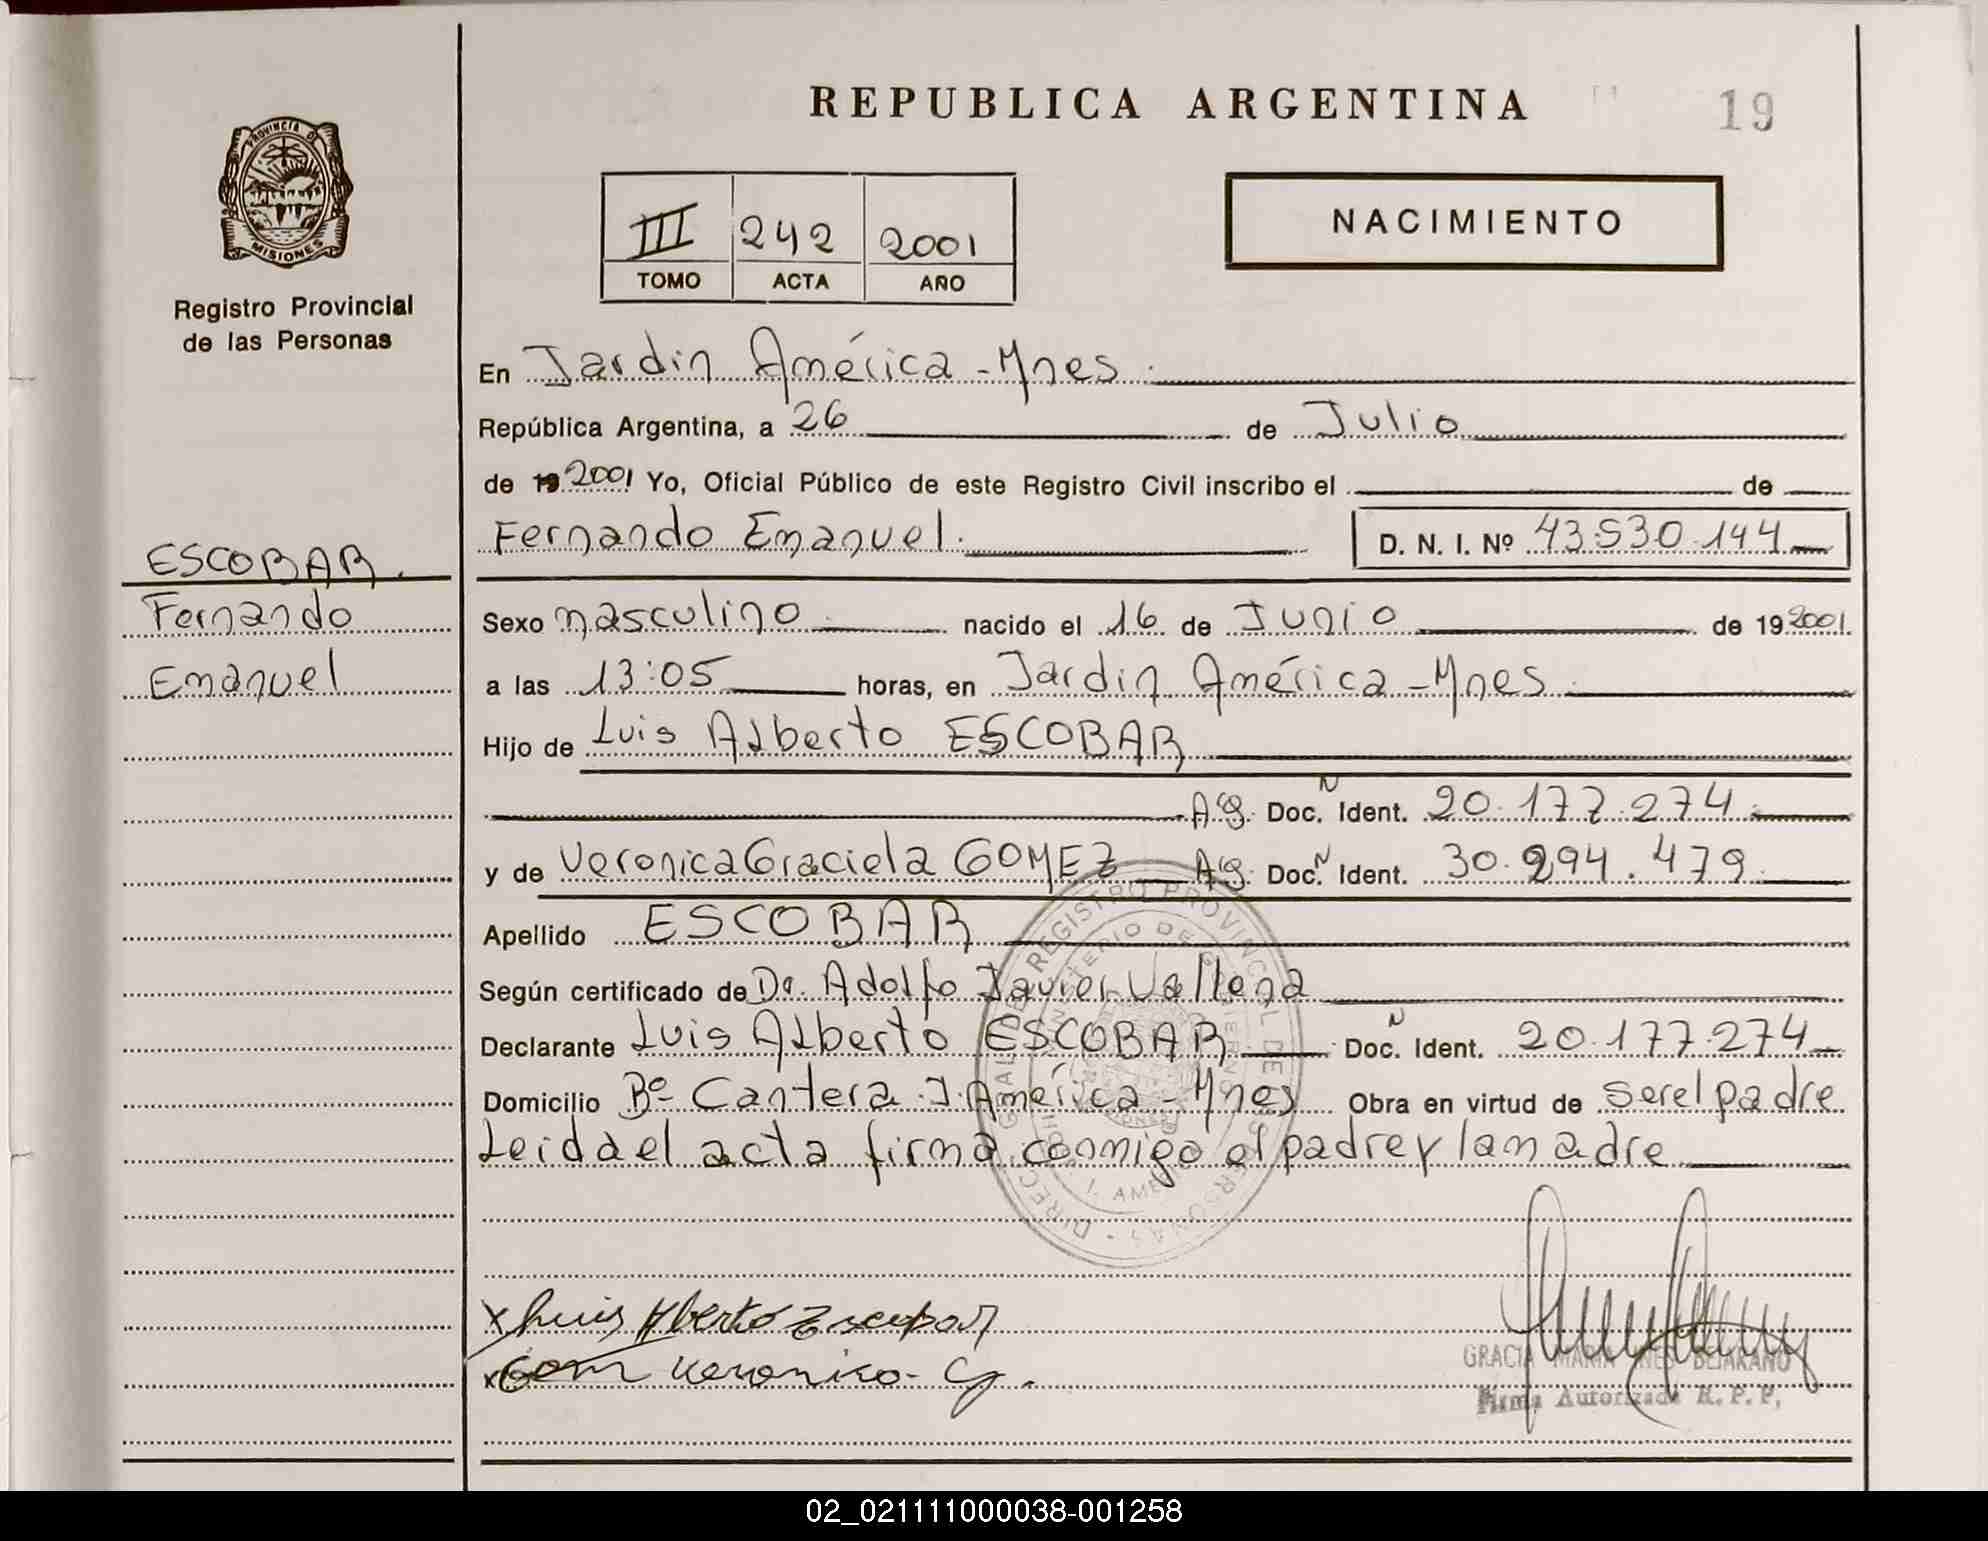 REPUBLICA ARGENTINA
19
PROVINCIA DE
MISIONES
Registro Provincial
de las Personas
III 242 2001
TOMO ACTA AÑO
NACIMIENTO
En Jardin América - Mnes.
República Argentina, a 26 de Julio
de 19 2001 Yo, Oficial Público de este Registro Civil inscribo el de
Fernando Emanuel. D. N. I. Nº 43.530.144
ESCOBAR.
Fernando
Emanuel
Sexo masculino nacido el 16 de Junio de 19 2001
a las 13:05 horas, en Jardin América - Mnes.
Hijo de Luis Alberto ESCOBAR
Ag. Doc. N Ident. 20.177.274
y de Veronica Graciela GOMEZ Ag. Doc. N Ident. 30.294.479
Apellido ESCOBAR
Según certificado de Dr. Adolfo Javier Vallena
Declarante Luis Alberto ESCOBAR Doc. N Ident. 20.177.274
Domicilio Bº Cantera J. América - Mnes Obra en virtud de ser el padre
Leida el acta firma conmigo el padre y la madre
REGISTRO PROVINCIAL DE
x Luis Alberto Escobar
x Gom Veronica G.
GRACIA MARIA INES BEJARANO
Firma Autorizada R. P. P.
02_021111000038-001258